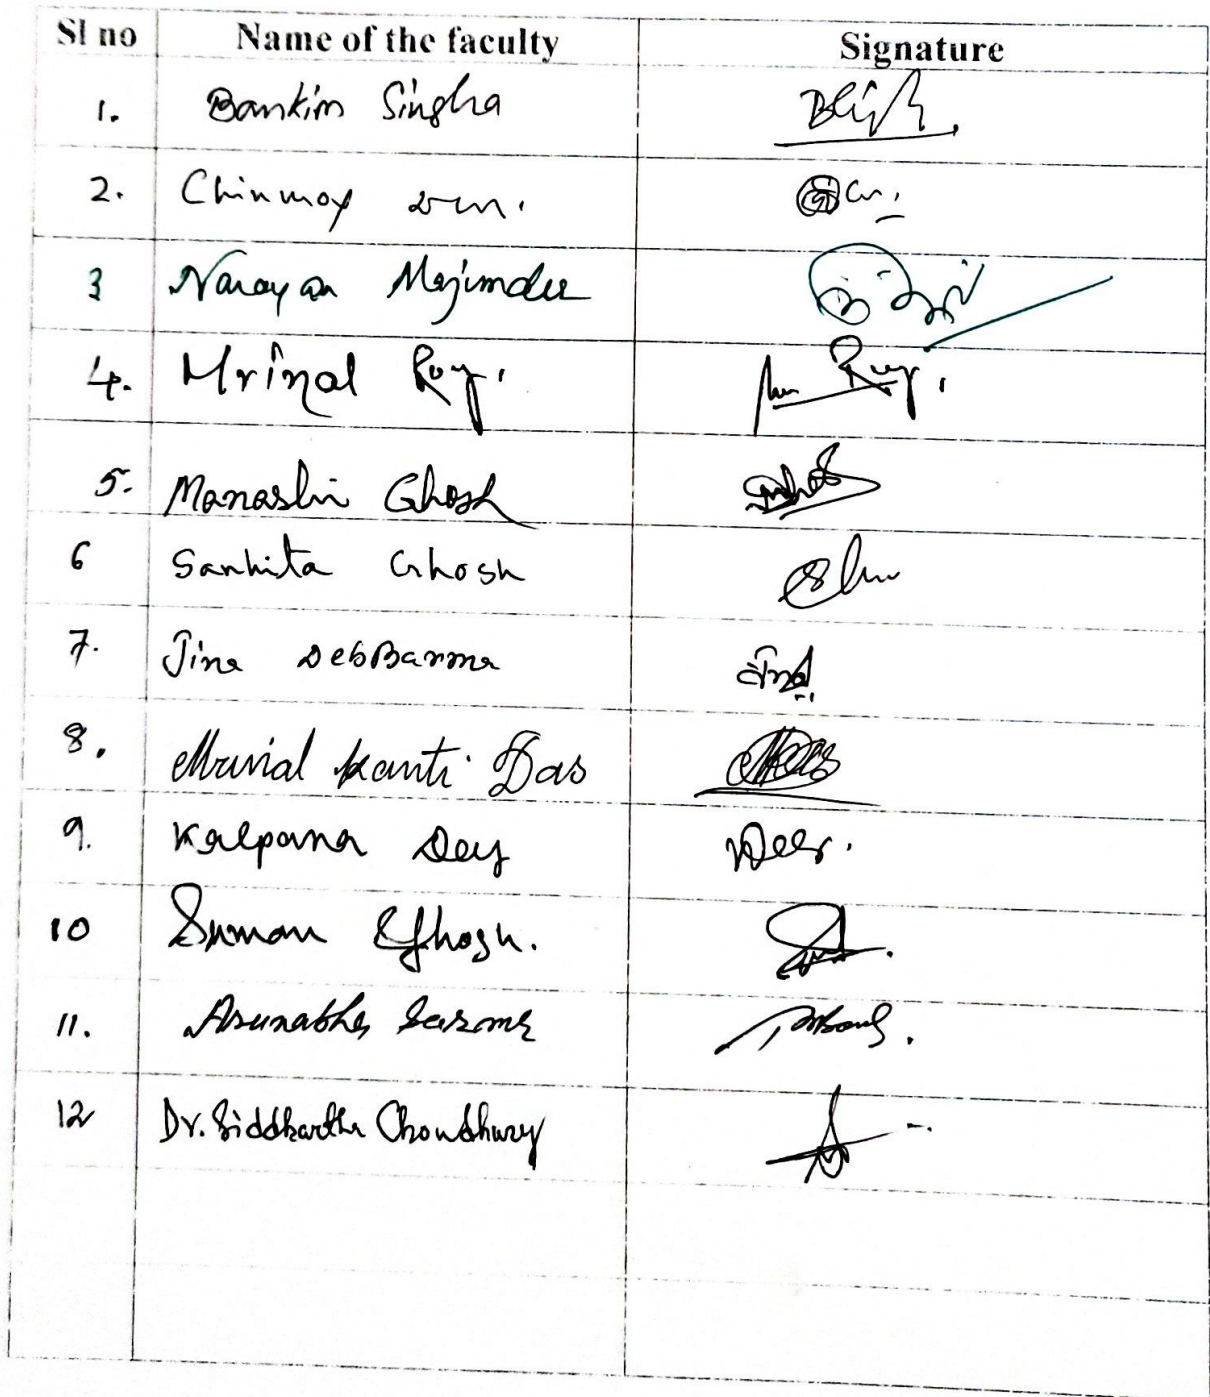 Sl no Name of the faculty Signature
1. Bankim Singha
2. Chinmoy
3 Narayan Majumder
4. Mrinal Roy. Roy.
5. Manashi Ghosh
6 Sanhita Ghosh
7. Jina DebBarma
8. Mrinal Kanti Das
9. Kalpana Dey
10 Suman Ghosh.
11. Arunabha Sarma
12 Dr. Siddhartha Choudhury